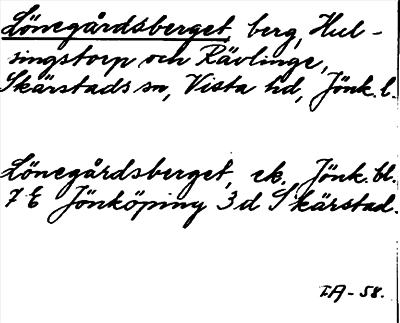 Lönegårdsberget, berg, Hul-
singstorp och Rävlinge,
Skärstads sn, Vista hd, Jönk. l.
Lönegårdsberget, ek. Jönk. bl.
7 E Jönköping 3 d Skärstad.
IA - 58.